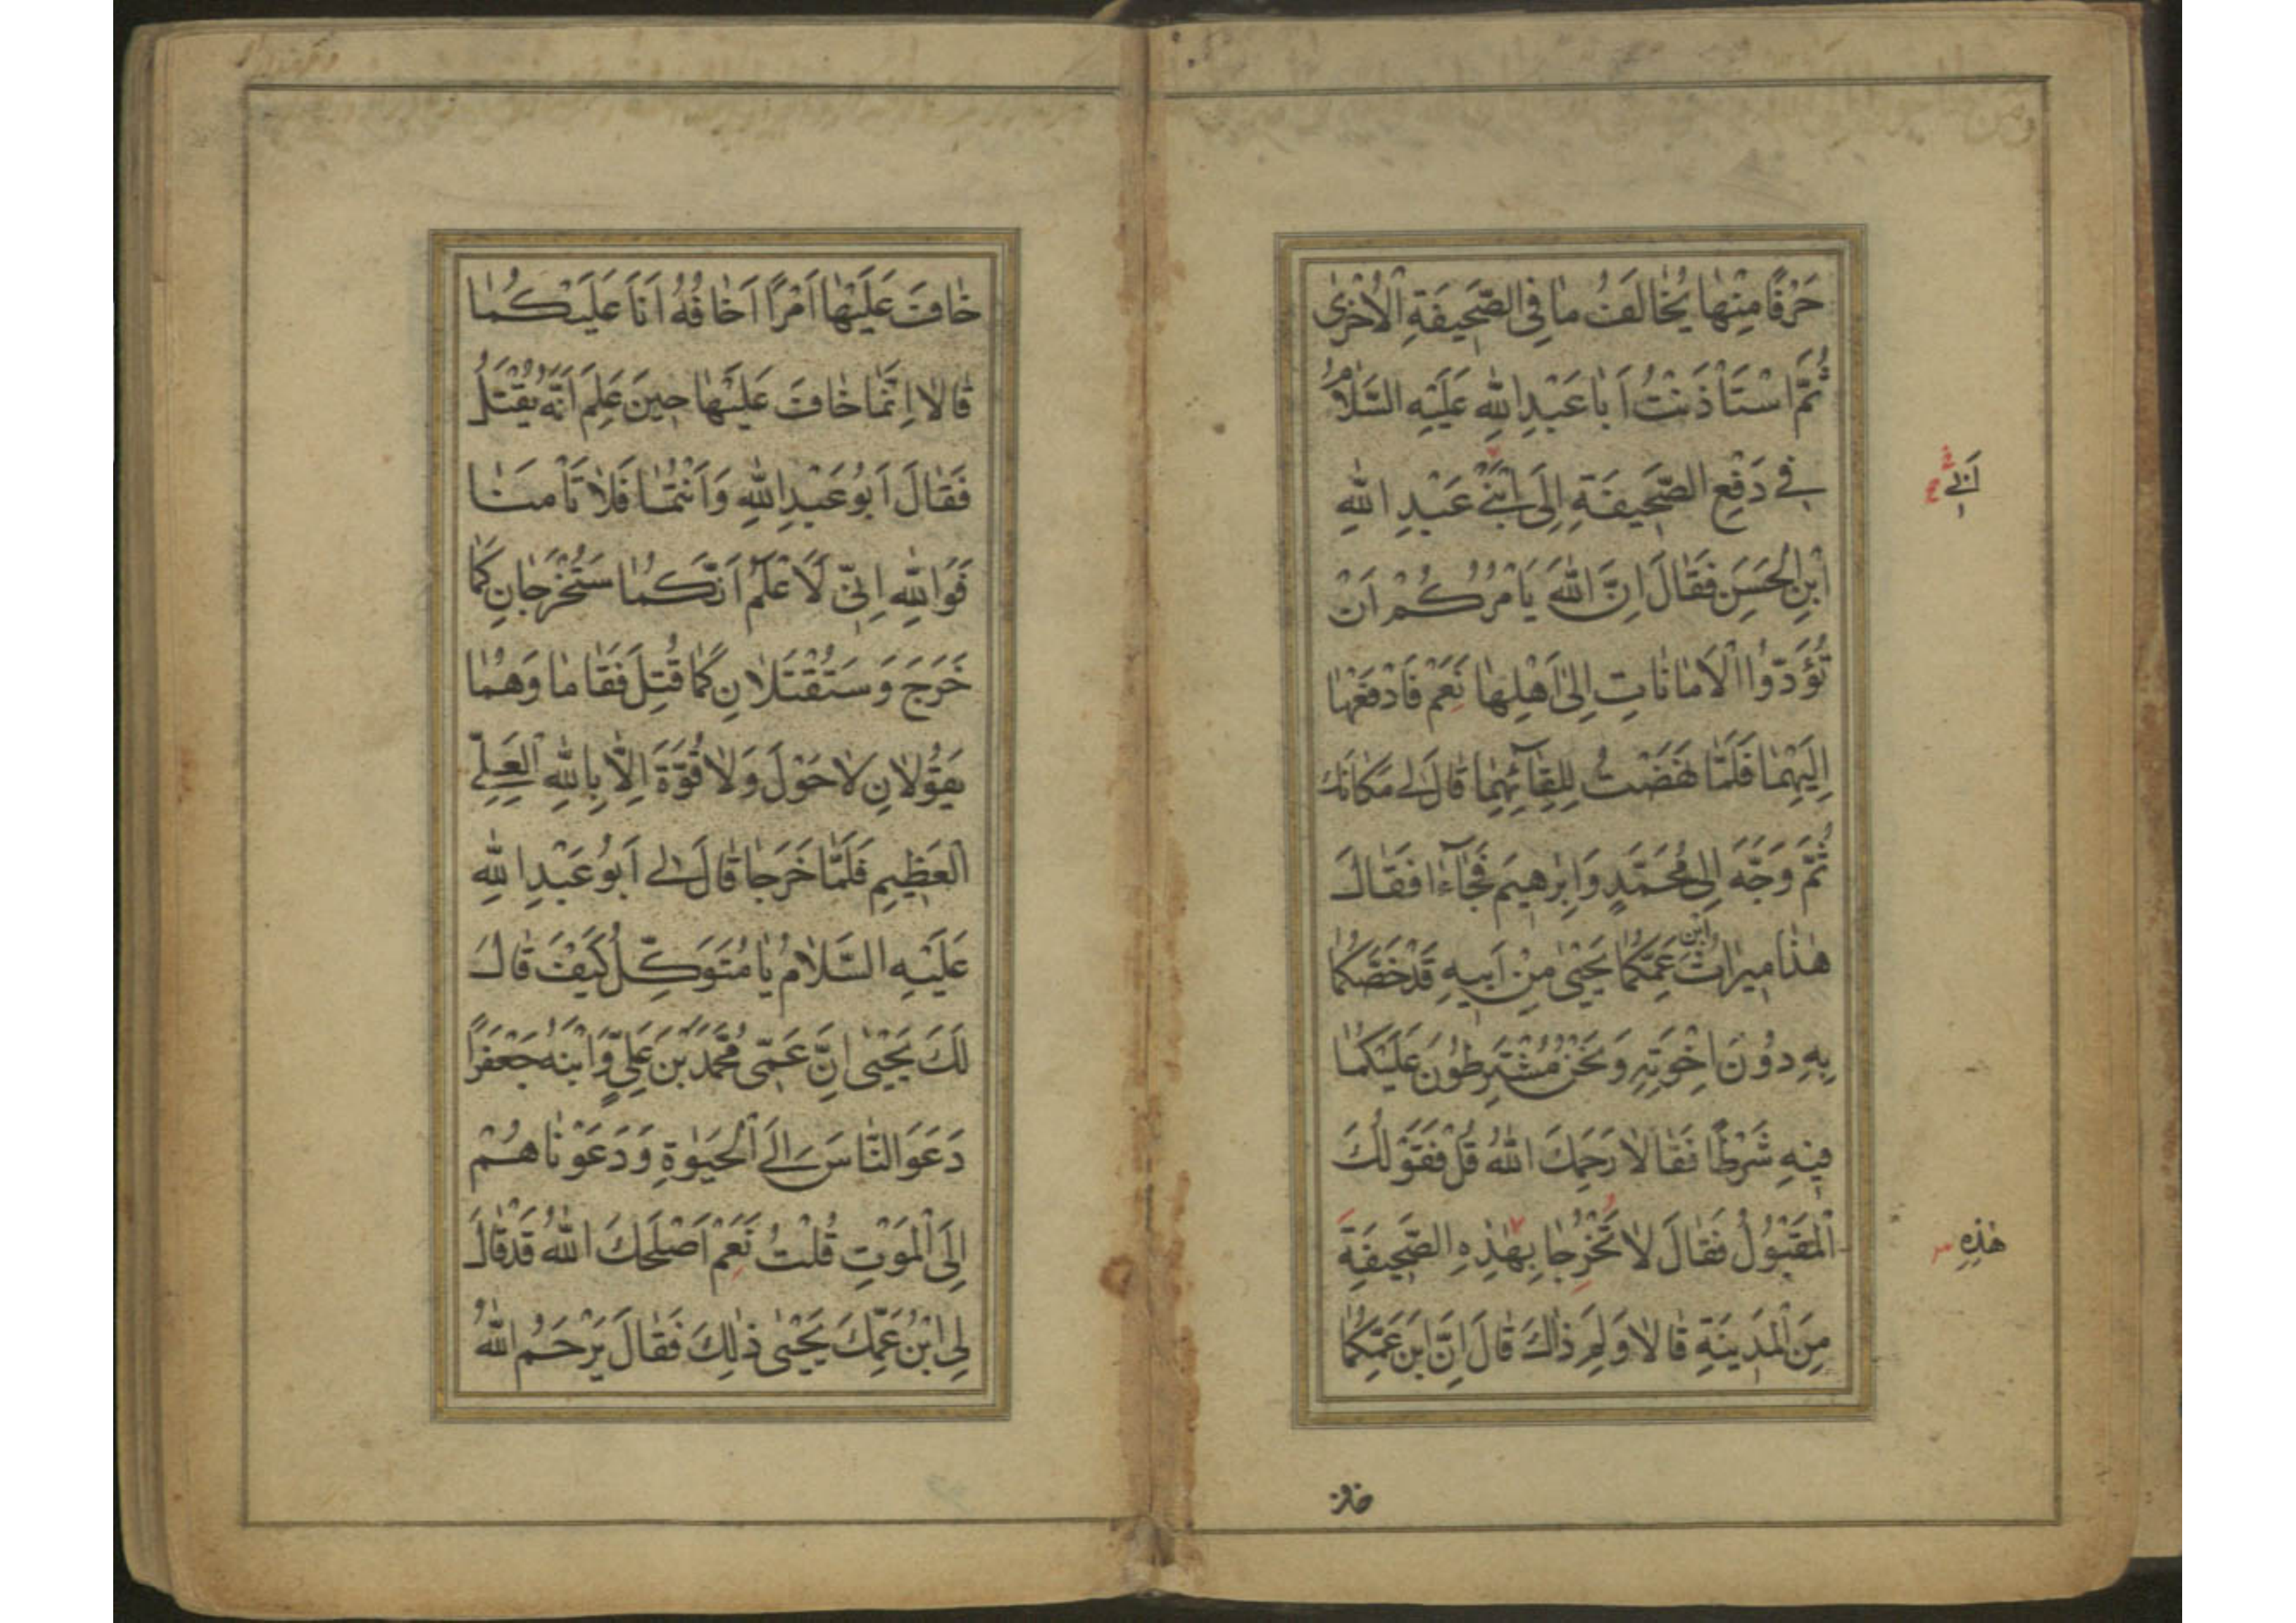 حَرْفًا مِنْهَا يُخَالَفُ مَا فِي الصَّحِيفَةِ الْأُخْرَى
ثُمَّ اسْتَأْذَنْتُ أَبَا عَبْدِ اللهِ عَلَيْهِ السَّلَامُ
فِي دَفْعِ الصَّحِيفَةِ إِلَى ابْنَيْ عَبْدِ اللهِ
ابْنِ الْحَسَنِ فَقَالَ إِنَّ اللهَ يَأْمُرُكُمْ أَنْ
تُؤَدُّوا الْأَمَانَاتِ إِلَى أَهْلِهَا نَعَمْ فَادْفَعْهَا
إِلَيْهِمَا فَلَمَّا نَهَضْتُ لِلِقَائِهِمَا قَالَ لِي مَكَانَكَ
ثُمَّ وَجَّهَ إِلَى مُحَمَّدٍ وَإِبْرٰهِيمَ فَجَاءَا فَقَالَ
هٰذَا مِيرَاثُ ابْنِ عَمِّكُمَا يَحْيَى مِنْ أَبِيهِ قَدْ خَصَّكُمَا
بِهِ دُونَ إِخْوَتِهِ وَنَحْنُ مُشْتَرِطُونَ عَلَيْكُمَا
فِيهِ شَرْطًا فَقَالَا رَحِمَكَ اللهُ قُلْ فَقَوْلُكَ
الْمَقْبُولُ فَقَالَ لَا تَخْرُجَا بِهٰذِهِ الصَّحِيفَةِ
هٰذِهِ
مِنَ الْمَدِينَةِ قَالَا وَلِمَ ذَاكَ قَالَ إِنَّ ابْنَ عَمِّكُمَا
خاف
خَافَ عَلَيْهَا أَمْرًا أَخَافُهُ أَنَا عَلَيْكُمَا
قَالَا إِنَّمَا خَافَ عَلَيْهَا حِينَ عَلِمَ أَنَّهُ يُقْتَلُ
فَقَالَ أَبُو عَبْدِ اللهِ وَأَنْتُمَا فَلَا تَأْمَنَا
فَوَاللهِ إِنِّي لَأَعْلَمُ أَنَّكُمَا سَتَخْرُجَانِ كَمَا
خَرَجَ وَسَتُقْتَلَانِ كَمَا قُتِلَ فَقَامَا وَهُمَا
يَقُولَانِ لَا حَوْلَ وَلَا قُوَّةَ إِلَّا بِاللهِ الْعَلِيِّ
الْعَظِيمِ فَلَمَّا خَرَجَا قَالَ لِي أَبُو عَبْدِ اللهِ
عَلَيْهِ السَّلَامُ يَا مُتَوَكِّلُ كَيْفَ قَالَ
لَكَ يَحْيَى إِنَّ عَمِّي مُحَمَّدَ بْنَ عَلِيٍّ وَابْنَهُ جَعْفَرًا
دَعَوَا النَّاسَ إِلَى الْحَيٰوةِ وَدَعَوْنَاهُمْ
إِلَى الْمَوْتِ قُلْتُ نَعَمْ أَصْلَحَكَ اللهُ قَدْ قَالَ
لِي ابْنُ عَمِّكَ يَحْيَى ذٰلِكَ فَقَالَ يَرْحَمُ اللهُ